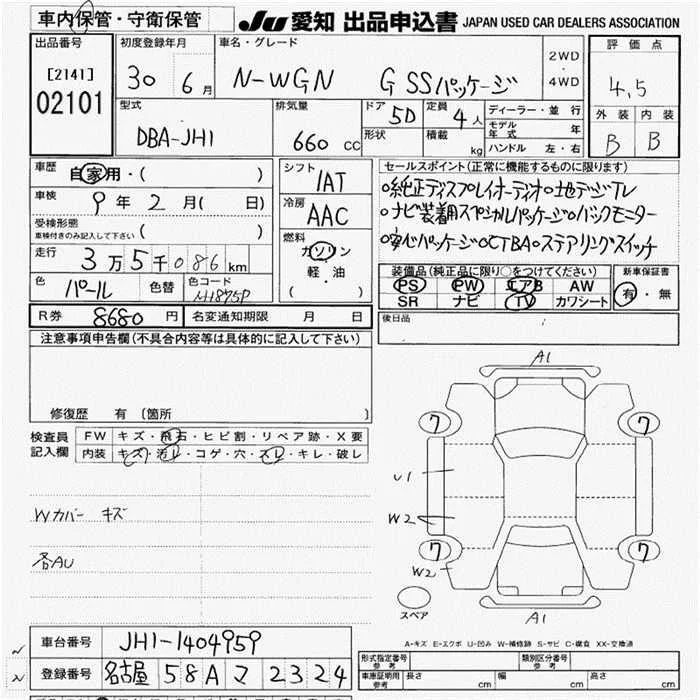 車内保管・守衛保管 JU 愛知 出品申込書 JAPAN USED CAR DEALERS ASSOCIATION
出品番号 [2141] 02101
初度登録年月 30 6月
車名・グレード N-WGN G SSパッケージ 2WD・4WD
評価点 4.5
外装 B 内装 B
型式 DBA-JH1
排気量 660 cc
ドア 5D 形状
定員 4人 積載 kg
ディーラー・並行
モデル年式 年
ハンドル 左・右
車歴 自家用・( )
車検 9年2月( 日)
受検形態 車検付きのみ記入して下さい ( )
走行 3万5千086km
色 パール 色替 色コード NH875P
シフト IAT
冷房 AAC
燃料 ガソリン 軽・油 ( )
セールスポイント(正常に機能するものに限ります)
○純正ディスプレイオーディオ○地デジTV
○ナビ装着用スペシャルパッケージ○バックモニター
○安心パッケージ○CTBA○ステアリングスイッチ
装備品(純正品に限り○をつけてください) 新車保証書
PS PW エアB AW 有・無
SR ナビ TV カワシート
R券 8680円 名変通知期限 月 日
後日品
注意事項申告欄(不具合内容等は具体的に記入して下さい)
修復歴 有〔箇所 〕
検査員記入欄 FW キズ・飛石・ヒビ割・リペア跡・X要
内装 キズ・汚レ・コゲ・穴・スレ・キレ・破レ
Wカバー キズ
各AU
A1
7 7
U1
W2
7 7
W2
スペア
A1
A-キズ E-エクボ U-凹み W-補修跡 S-サビ C-腐食 XX-交換済
車台番号 JH1-1404959
登録番号 名古屋 58A マ 2324
形式指定番号 参考 類別区分番号 参考
車庫証明用 参考 長さ cm 幅 cm 高さ cm